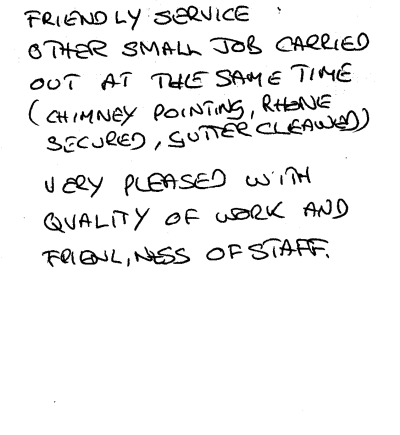 FRIENDLY SERVICE
OTHER SMALL JOB CARRIED
OUT AT THE SAME TIME
(CHIMNEY POINTING, RHONE
SECURED, GUTTER CLEANED)
VERY PLEASED WITH
QUALITY OF WORK AND
FRIENLINESS OF STAFF.